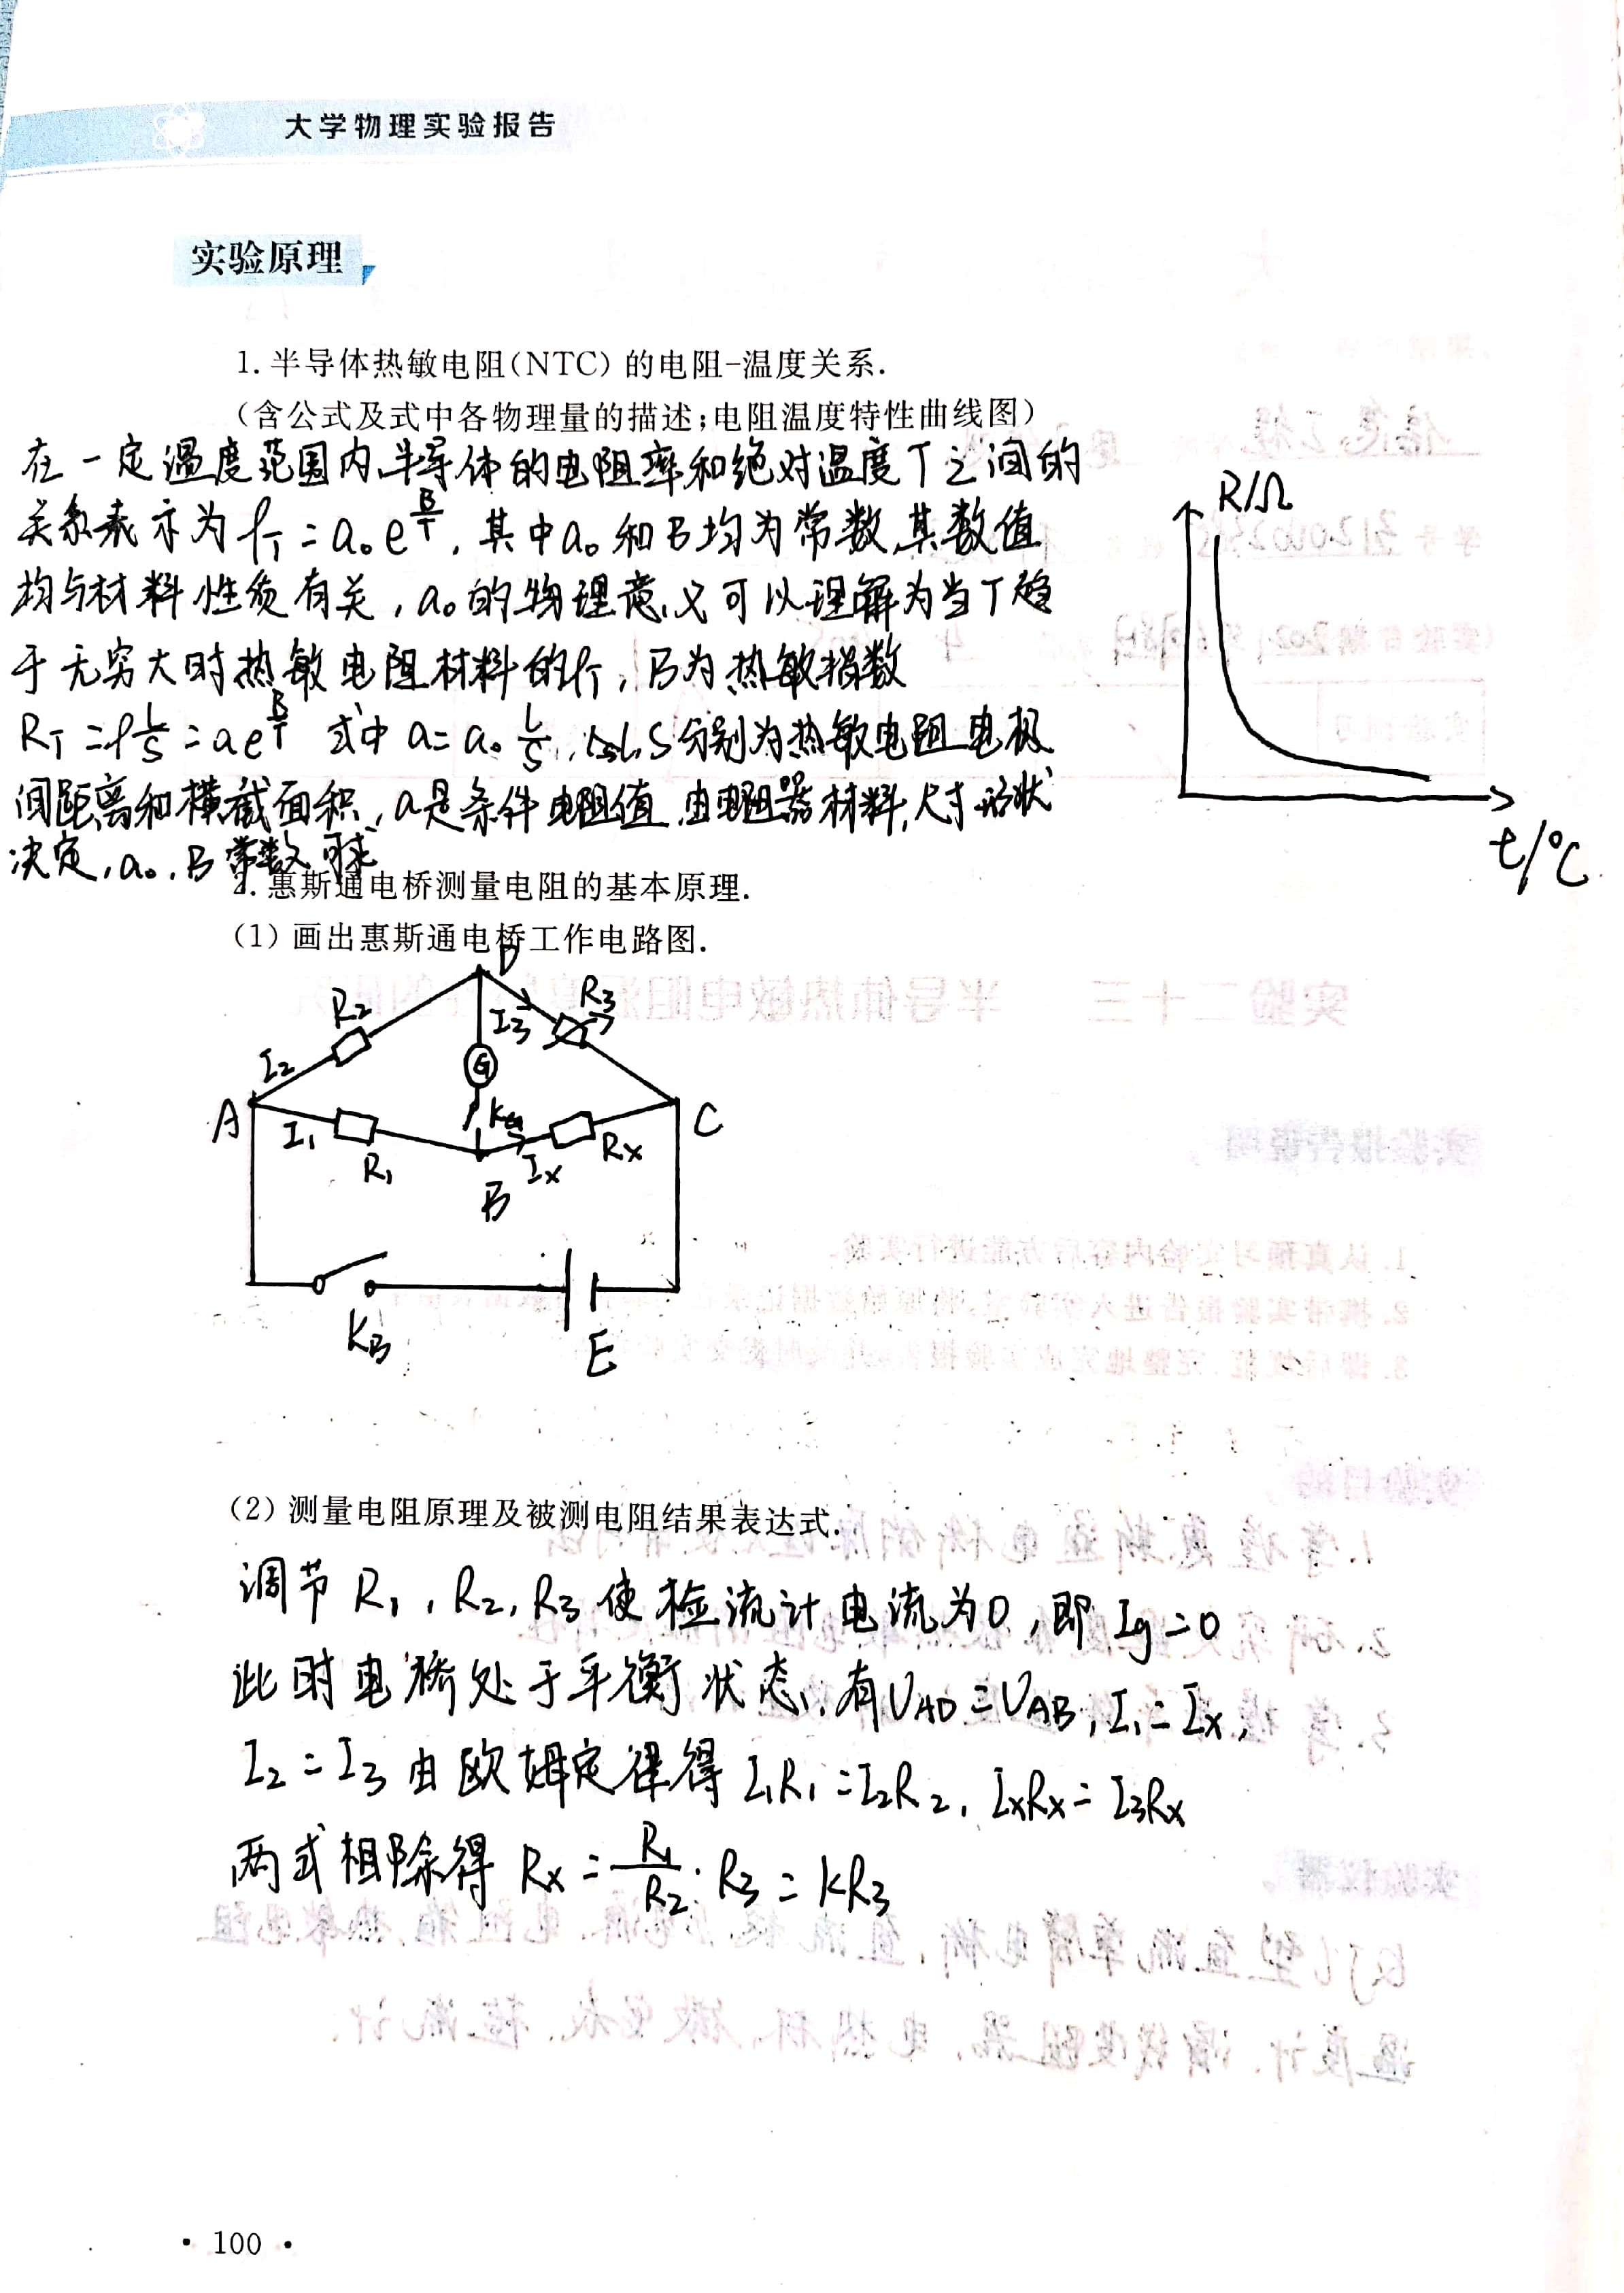 大学物理实验报告
实验原理
1. 半导体热敏电阻(NTC) 的电阻-温度关系.
(含公式及式中各物理量的描述;电阻温度特性曲线图)
在一定温度范围内,半导体的电阻率和绝对温度T之间的
关系表示为 ρT = a₀e^(B/T), 其中a₀和B均为常数,其数值
均与材料性质有关, a₀的物理意义可以理解为当T趋
于无穷大时热敏电阻材料的ρT, B为热敏指数
RT = ρ L/S = ae^(B/T) 式中 a = a₀ L/S, L,S分别为热敏电阻电极
间距离和横截面积, a是条件电阻值,由电阻器材料,尺寸形状
决定, a₀, B常数可求
R/Ω
t/℃
2. 惠斯通电桥测量电阻的基本原理.
(1) 画出惠斯通电桥工作电路图.
D
R₂
I₃
R₃
I₂
G
A
I₁
KG
C
R₁
Ix
Rx
B
KB
E
(2) 测量电阻原理及被测电阻结果表达式.
调节 R₁, R₂, R₃ 使检流计电流为0, 即 Ig = 0
此时电桥处于平衡状态, 有 UAD = UAB, I₁ = Ix,
I₂ = I₃ 由欧姆定律得 I₁R₁ = I₂R₂, IxRx = I₃Rx
两式相除得 Rx = R₁/R₂ · R₃ = kR₃
· 100 ·